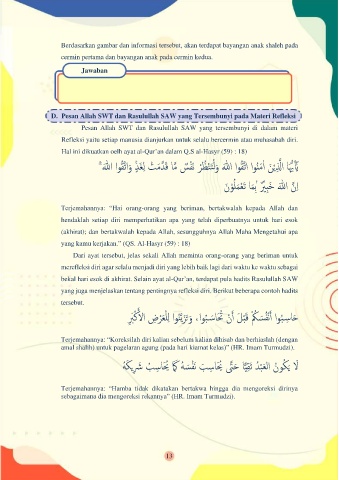 Berdasarkan gambar dan informasi tersebut, akan terdapat bayangan anak shaleh pada
cermin pertama dan bayangan anak pada cermin kedua.
Jawaban
D. Pesan Allah SWT dan Rasulullah SAW yang Tersembunyi pada Materi Refleksi
Pesan Allah SWT dan Rasulullah SAW yang tersembunyi di dalam materi
Refleksi yaitu setiap manusia dianjurkan untuk selalu bercermin atau muhasabah diri.
Hal ini dikuatkan oelh ayat al-Qur'an dalam Q.S al-Hasyr (59) : 18)
يَٰٓأَيُّهَا الَّذِيْنَ اٰمَنُوا اتَّقُوا اللّٰهَ وَلْتَنْظُرْ نَفْسٌ مَّا قَدَّمَتْ لِغَدٍ وَاتَّقُوا اللّٰهَ ۗ
اِنَّ اللّٰهَ خَبِيْرٌ بِمَا تَعْمَلُوْنَ
Terjemahannya: "Hai orang-orang yang beriman, bertakwalah kepada Allah dan
hendaklah setiap diri memperhatikan apa yang telah diperbuatnya untuk hari esok
(akhirat); dan bertakwalah kepada Allah, sesungguhnya Allah Maha Mengetahui apa
yang kamu kerjakan." (QS. Al-Hasyr (59) : 18)
Dari ayat tersebut, jelas sekali Allah meminta orang-orang yang beriman untuk
merefleksi diri agar selalu menjadi diri yang lebih baik lagi dari waktu ke waktu sebagai
bekal hari esok di akhirat. Selain ayat al-Qur'an, terdapat pula hadits Rasulullah SAW
yang juga menjelaskan tentang pentingnya refleksi diri. Berikut beberapa contoh hadits
tersebut.
حَاسِبُوا أَنْفُسَكُمْ قَبْلَ أَنْ تُحَاسَبُوا، وَتَزَيَّنُوا لِلْعَرْضِ الْأَكْبَرِ
Terjemahannya: "Koreksilah diri kalian sebelum kalian dihisab dan berhiaslah (dengan
amal shalih) untuk pagelaran agung (pada hari kiamat kelas)" (HR. Imam Turmudzi).
لَا يَكُونُ العَبْدُ تَقِيًّا حَتَّى يُحَاسِبَ نَفْسَهُ كَمَا يُحَاسِبُ شَرِيكَهُ
Terjemahannya: "Hamba tidak dikatakan bertakwa hingga dia mengoreksi dirinya
sebagaimana dia mengoreksi rekannya" (HR. Imam Turmudzi).
13